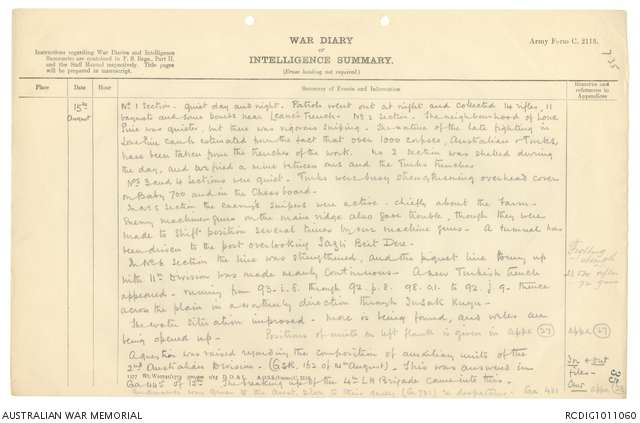 WAR DIARY
or
INTELLIGENCE SUMMARY.
(Erase heading not required)
Army Form C. 2118.
Instructions regarding War Diaries and Intelligence
Summaries are contained in F. S. Regs., Part II.
and the Staff Manual respectively. Title pages
will be prepared in manuscript.
735
Place
Date
Hour
Summary of Events and Information
Remarks and
references to
Appendices
15th
August
No 1 Section. Quiet day and night. Patrols went out at night and collected 14 rifles, 11
bayonets and some bombs near Leane's Trench. No 2 Section. The neighbourhood of Lone
Pine was quieter, but there was vigorous sniping. The nature of the late fighting in
Lone Pine can be estimated from the fact that over 1000 corpses, Australian & Turks,
have been taken from the trenches of the work. No 2 Section was shelled during
the day, and we fired a mine between ours and the Turks trenches
No 3 and 4 Sections were quiet. Turks were busy strengthening overhead cover
on Baby 700 and in the Chessboard.
In No 5 Section the enemy's snipers were active - chiefly about the Farm.
Enemy machine guns on the main ridge also gave trouble, though they were
made to shift position several times by our machine guns. A tunnel has
been driven to the post overlooking Sazli Beit Dere.
In No 6 Section the line was strengthened, and the piquet line joining up
with 11th Division was made nearly continuous. A new Turkish trench
appeared running from 93. i. 8. through 92. p. 8. 98. a1. to 92. J. 9. thence
across the plain in a northerly direction through Susak Kuyu.
The water situation improved - more is being found, and wells are
being opened up. Positions of units on left flank is given in appx (27)
appx (27)
A question was raised regarding the composition of auxiliary units of the
2nd Australian Division. (GSR. 152 of 14th August). This was answered in
Ga 445 of 15th. The breaking up of the 4th LH Brigade came into this.
Ga 451
In & out
files -
35